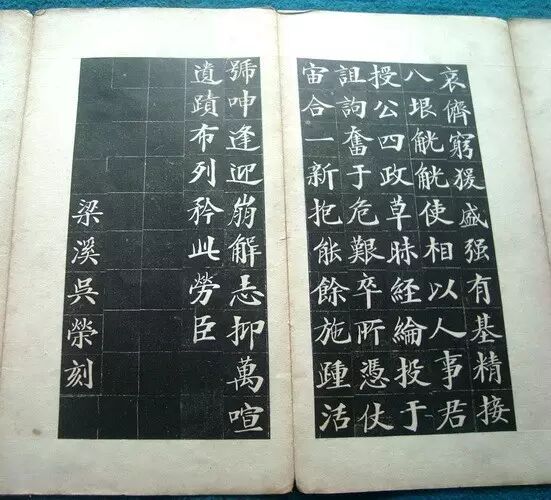 哀儕窮猨盛强有基精接
八垠觥觥使相以人事君
授公四政草昧經綸投于
詛詢奮于危艱卒所憑仗
宙合一新抱能餘施踵活
號呻逢迎崩解志抑萬喧
遺蹟布列矜此勞臣
梁溪吳榮刻